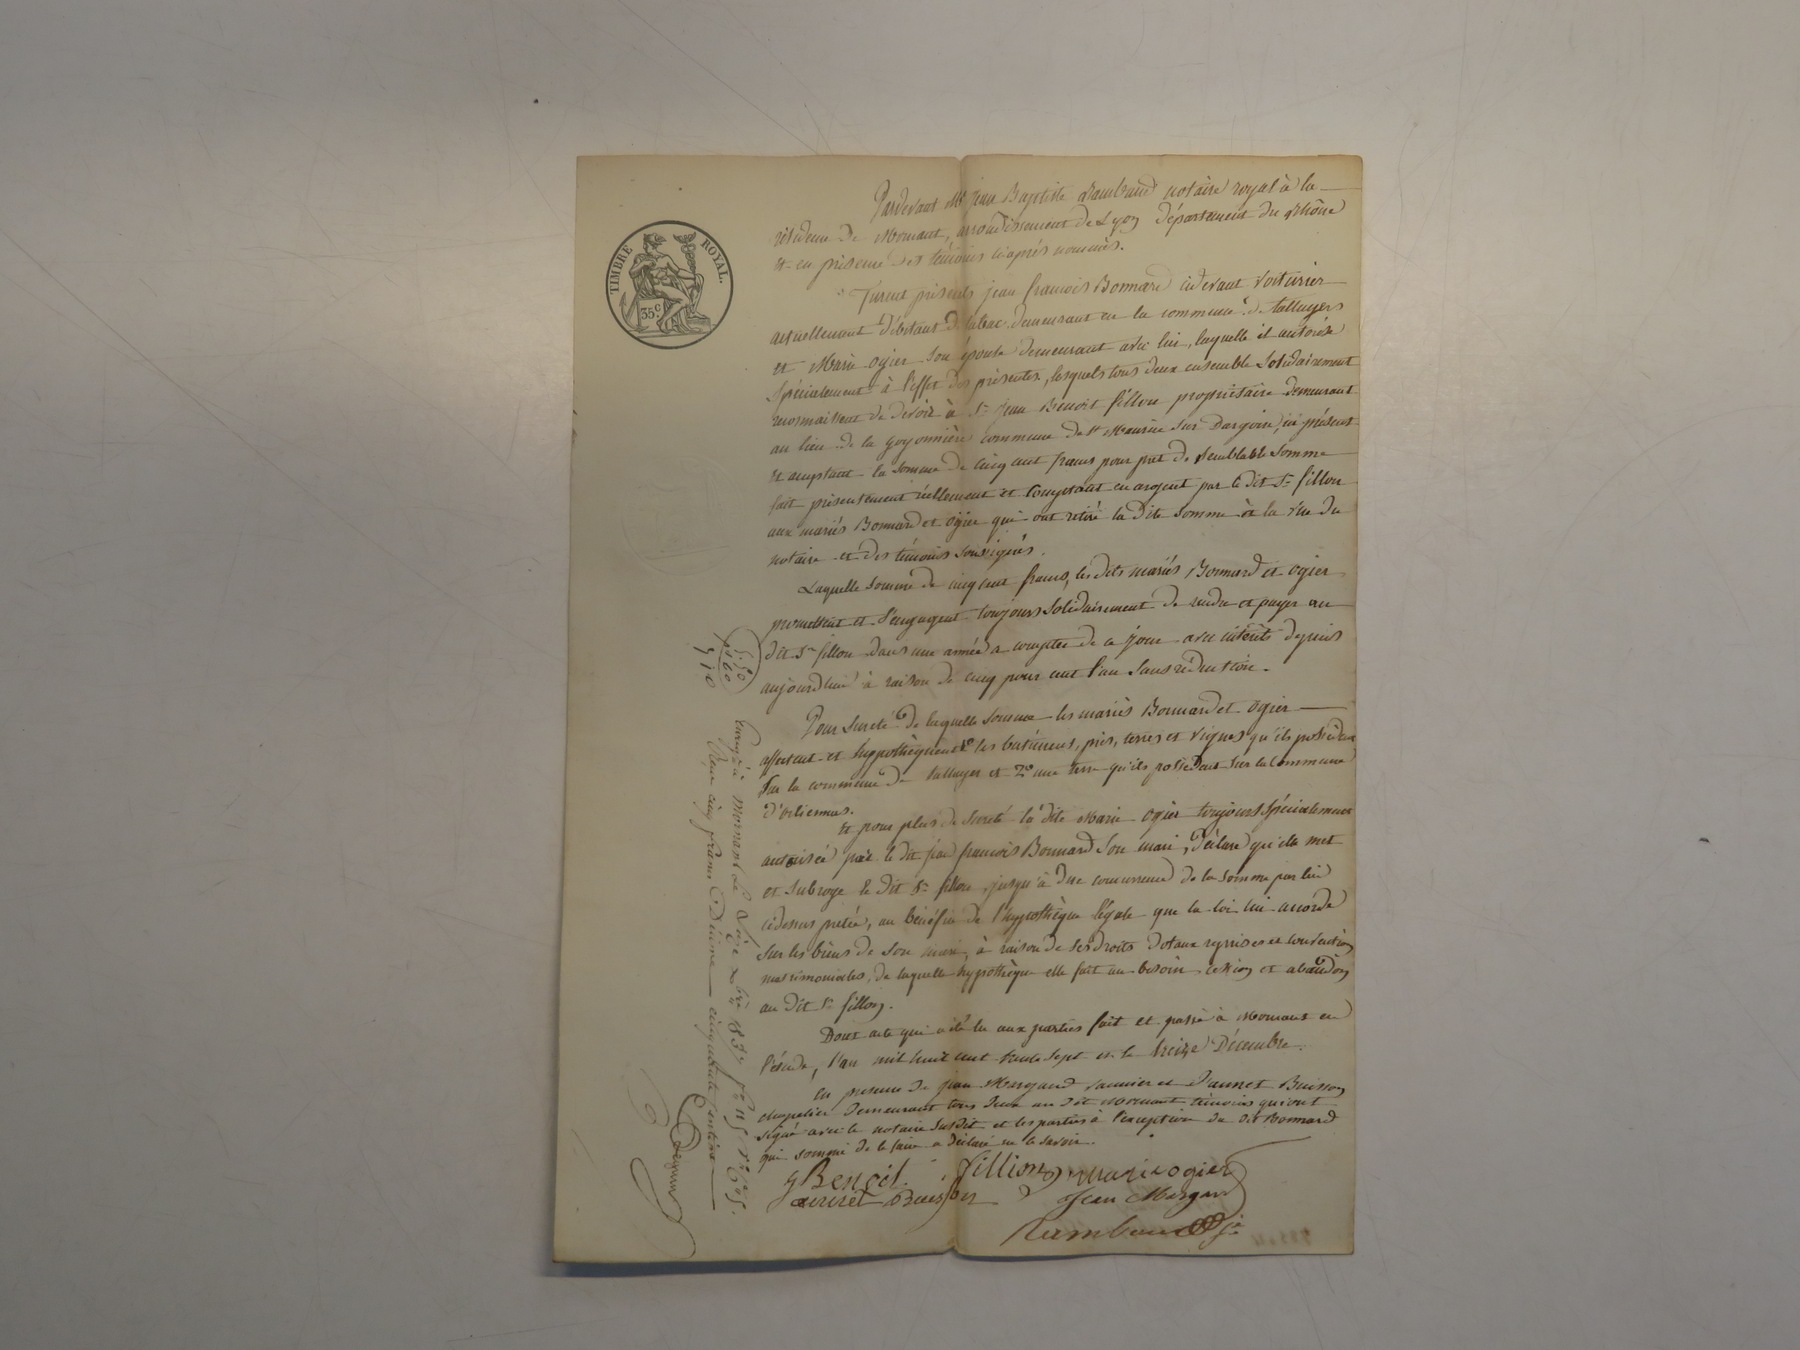 TIMBRE ROYAL.
35c
Pardevant Me Jean Baptiste Rambaud notaire royal à la
résidence de Mornant, arrondissement de Lyon département du Rhône
et en présence des témoins ciaprès nommés.
Furent présents jean françois Bonnard cidevant voiturier
actuellement débitant de tabac demeurant en la commune de talluyers
et Marie ogier son épouse demeurant avec lui, laquelle il autorise
spécialement à l'effet des présentes, lesquels tous deux ensemble solidairement
reconnaissent de devoir à Sr Jean Benoit fillon propriétaire demeurant
au lieu de la goyonnière commune de St Maurice sur Dargoire, ici présent
et acceptant la somme de cinq cent francs pour prêt de semblable somme
fait présentement réellement et comptant en argent par le dit Sr fillon
aux mariés Bonnard et ogier qui ont retiré la dite somme à la vue du
notaire et des témoins soussignés.
Laquelle somme de cinq cent francs, les dits mariés Bonnard et ogier
promettent et s'engagent toujours solidairement de rendre et payer au
dit Sr fillon dans une année a compter de ce jour avec intérêts depuis
aujourd'hui à raison de cinq pour cent l'an sans réduction.
Pour sureté de laquelle somme les mariés Bonnard et ogier
affectent et hyppothèquent 1o les batiments, prés, terres et vignes qu'ils possèdent
sur la commune de talluyer et 2o une terre qu'ils possedent sur la commune
d'orliennas.
Et pour plus de sureté la dite Marie ogier toujours spécialement
autorisée par le dit jean françois Bonnard son mari, déclare qu'elle met
et subroge le dit Sr fillon, jusqu'à due concurrence de la somme par lui
cidessus prêtée, au bénéfice de l'hyppothèque légale que la loi lui accorde
sur les biens de son mari, à raison de ses droits dotaux reprises et conventions
matrimoniales, de laquelle hyppothèque elle fait au besoin cession et abandon
au dit Sr fillon.
Dont acte qui a été lu aux parties fait et passé à Mornant en
l'étude, l'an mil huit cent trente sept et le treize Décembre.
En présence de jean Margand sannier et d'annet Buisson
chapelier demeurant tous deux au dit Mornant témoins qui ont
signé avec le notaire susdit et les parties à l'exception du dit Bonnard
qui sommé de le faire a déclaré ne le savoir.
J Benoit fillion marie ogier
annet Buisson Jean Margand
Rambaud
5.50
5 10
Enregé à Mornant Le Xbre 1837
Reçu cinq francs Décime cinquante centimes